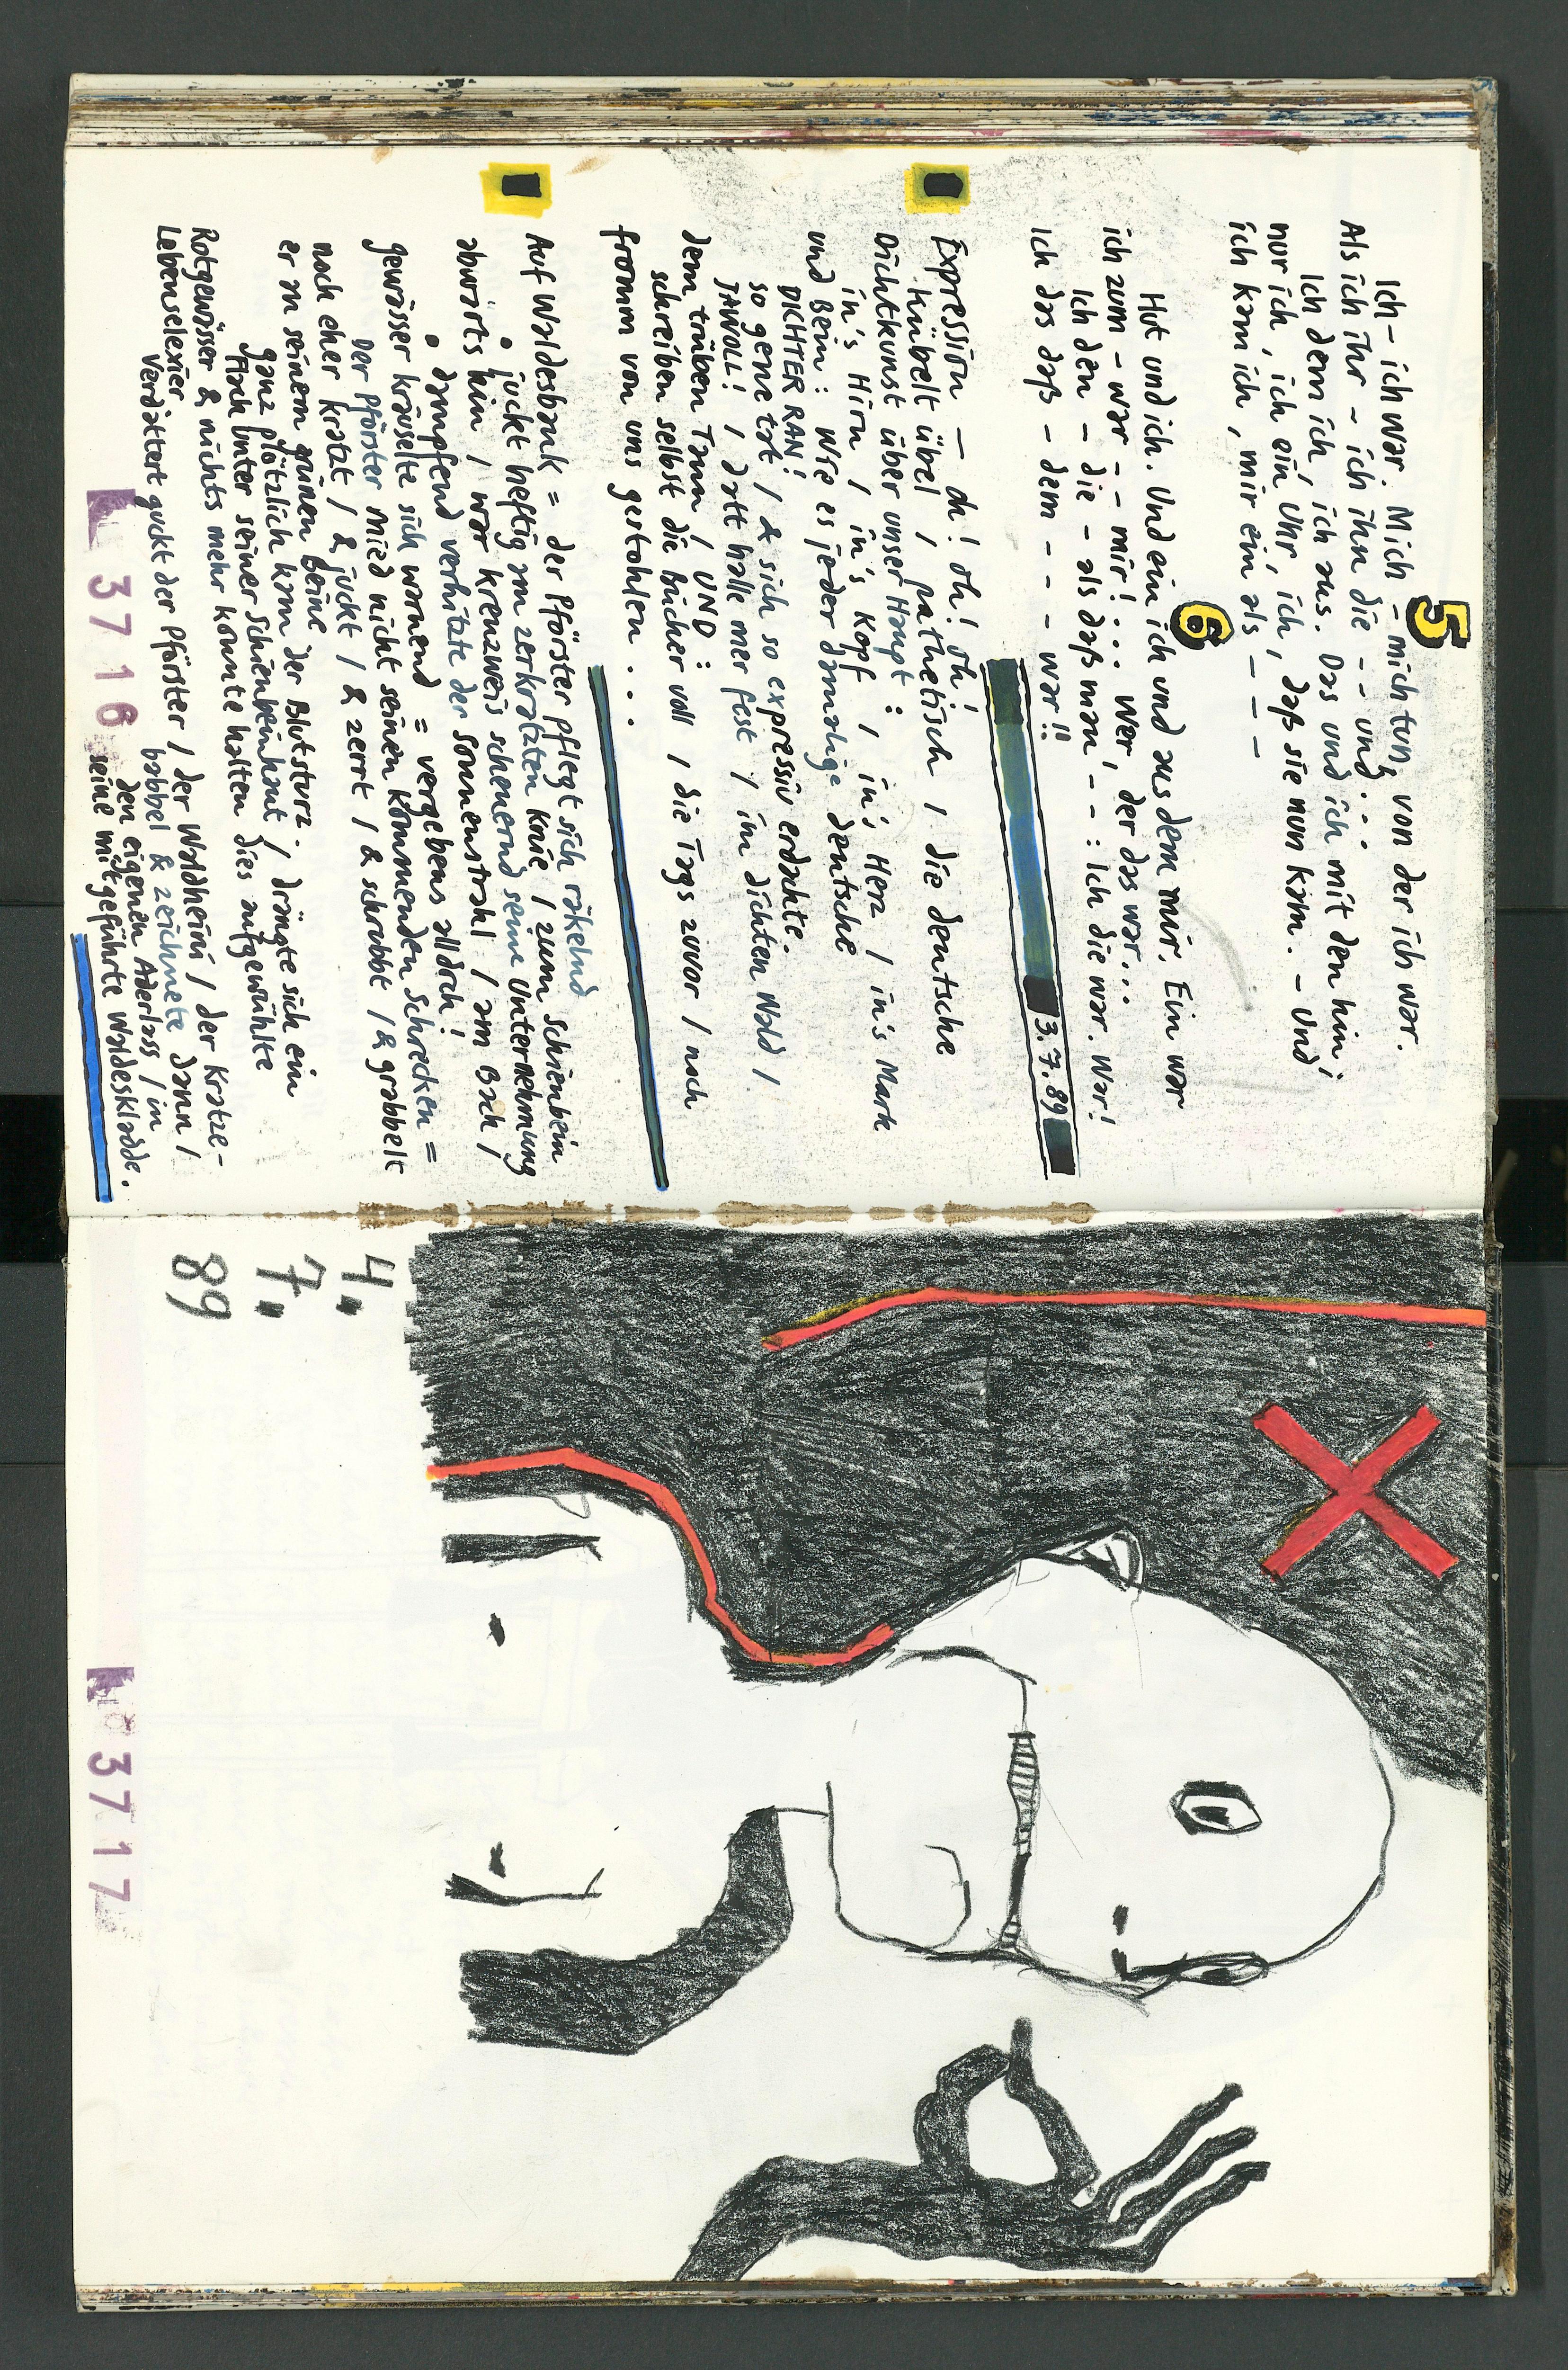 5
Ich – ich war. Mich – mich tun, von der ich war.
Als ich ihr – ich ihn die – – und . . .
Ich dem ich, ich aus. Das und ich mit den hin,
nur ich, ich ein Uhr, ich, daß sie nun kam. – Und
ich kam ich, mir ein als – – –
6
Hut und ich. Und ein ich und aus dem mir. Ein war
ich zum – war – – mir! . . . Wer, der das war . . .
Ich den – die – als daß man – – : Ich die war. War!
Ich das daß – dem – – – war!!
3.7.89
Expression – oh! oh! oh!
knübelt übel / pathetisch / die deutsche
Dichtkunst über unser Haupt:
in's Hirn / in's Kopf / in's Herz / in's Mark
und Bein: Wie es jeder damalige deutsche
DICHTER RAN!
so gene tat / & sich so expressiv erdachte.
JAWOLL! / datt halle mer fest / im dichten Wald /
dem trüben Tann / UND:
schreiben selbst die Bücher voll / die Tags zuvor / noch
fromm von uns gestohlen . . .
Auf Waldesbank = der Pförster pflegt sich räkelnd
juckt heftig am zerkratzten Knie / zum Schienbein
abwärts hin / war kreuzweis scheuernd seine Unternehmung
dampfend verhitzte der Sonnenstrahl / am Bach /
gewässer kräuselte sich warnend = vergebens alldoch!
Der Pförster mied nicht seinen kommenden Schrecken =
noch eher kratzt / & juckt / & zerrt / & schrubbt / & grabbelt
er an seinem grünen Beine
ganz plötzlich kam der Blutsturz. / drängte sich ein
Flach unter seiner Schienbeinhaut /
Rotgewässer & nichts mehr konnte halten dies aufgewühlte
Lebenselexier
Verdattert guckt der Pförster / der Waldheini / der Kratze-
babbel & zeichnete dann /
den eigenen Aderlass / in
seine mitgeführte Waldeskladde.
3716
4.
7.
89
3717